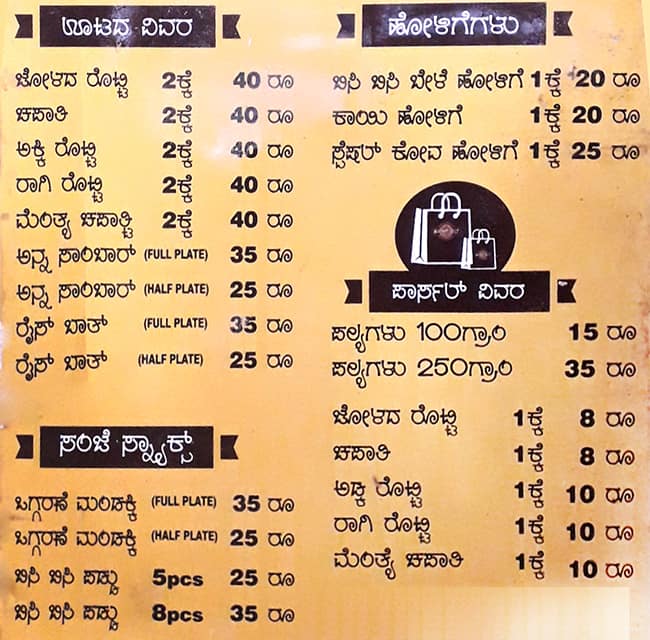 ಊಟದ ವಿವರ
ಜೋಳದ ರೊಟ್ಟಿ 2ಕ್ಕೆ 40 ರೂ
ಚಪಾತಿ 2ಕ್ಕೆ 40 ರೂ
ಅಕ್ಕಿ ರೊಟ್ಟಿ 2ಕ್ಕೆ 40 ರೂ
ರಾಗಿ ರೊಟ್ಟಿ 2ಕ್ಕೆ 40 ರೂ
ಮೆಂತ್ಯ ಚಪಾತ್ತಿ 2ಕ್ಕೆ 40 ರೂ
ಅನ್ನ ಸಾಂಬಾರ್ (FULL PLATE) 35 ರೂ
ಅನ್ನ ಸಾಂಬಾರ್ (HALF PLATE) 25 ರೂ
ರೈಸ್ ಬಾತ್ (FULL PLATE) 35 ರೂ
ರೈಸ್ ಬಾತ್ (HALF PLATE) 25 ರೂ
ಸಂಜೆ ಸ್ನ್ಯಾಕ್ಸ್
ಒಗ್ಗರಣೆ ಮಂಡಕ್ಕಿ (FULL PLATE) 35 ರೂ
ಒಗ್ಗರಣೆ ಮಂಡಕ್ಕಿ (HALF PLATE) 25 ರೂ
ಬಿಸಿ ಬಿಸಿ ಪಡ್ಡು 5pcs 25 ರೂ
ಬಿಸಿ ಬಿಸಿ ಪಡ್ಡು 8pcs 35 ರೂ
ಹೋಳಿಗೆಗಳು
ಬಿಸಿ ಬಿಸಿ ಬೇಳೆ ಹೋಳಿಗೆ 1ಕ್ಕೆ 20 ರೂ
ಕಾಯಿ ಹೋಳಿಗೆ 1ಕ್ಕೆ 20 ರೂ
ಸ್ಪೆಷಲ್ ಕೋವ ಹೋಳಿಗೆ 1ಕ್ಕೆ 25 ರೂ
ಪಾರ್ಸಲ್ ವಿವರ
ಪಲ್ಯಗಳು 100ಗ್ರಾಂ 15 ರೂ
ಪಲ್ಯಗಳು 250ಗ್ರಾಂ 35 ರೂ
ಜೋಳದ ರೊಟ್ಟಿ 1ಕ್ಕೆ 8 ರೂ
ಚಪಾತಿ 1ಕ್ಕೆ 8 ರೂ
ಅಕ್ಕಿ ರೊಟ್ಟಿ 1ಕ್ಕೆ 10 ರೂ
ರಾಗಿ ರೊಟ್ಟಿ 1ಕ್ಕೆ 10 ರೂ
ಮೆಂತ್ಯೆ ಚಪಾತಿ 1ಕ್ಕೆ 10 ರೂ